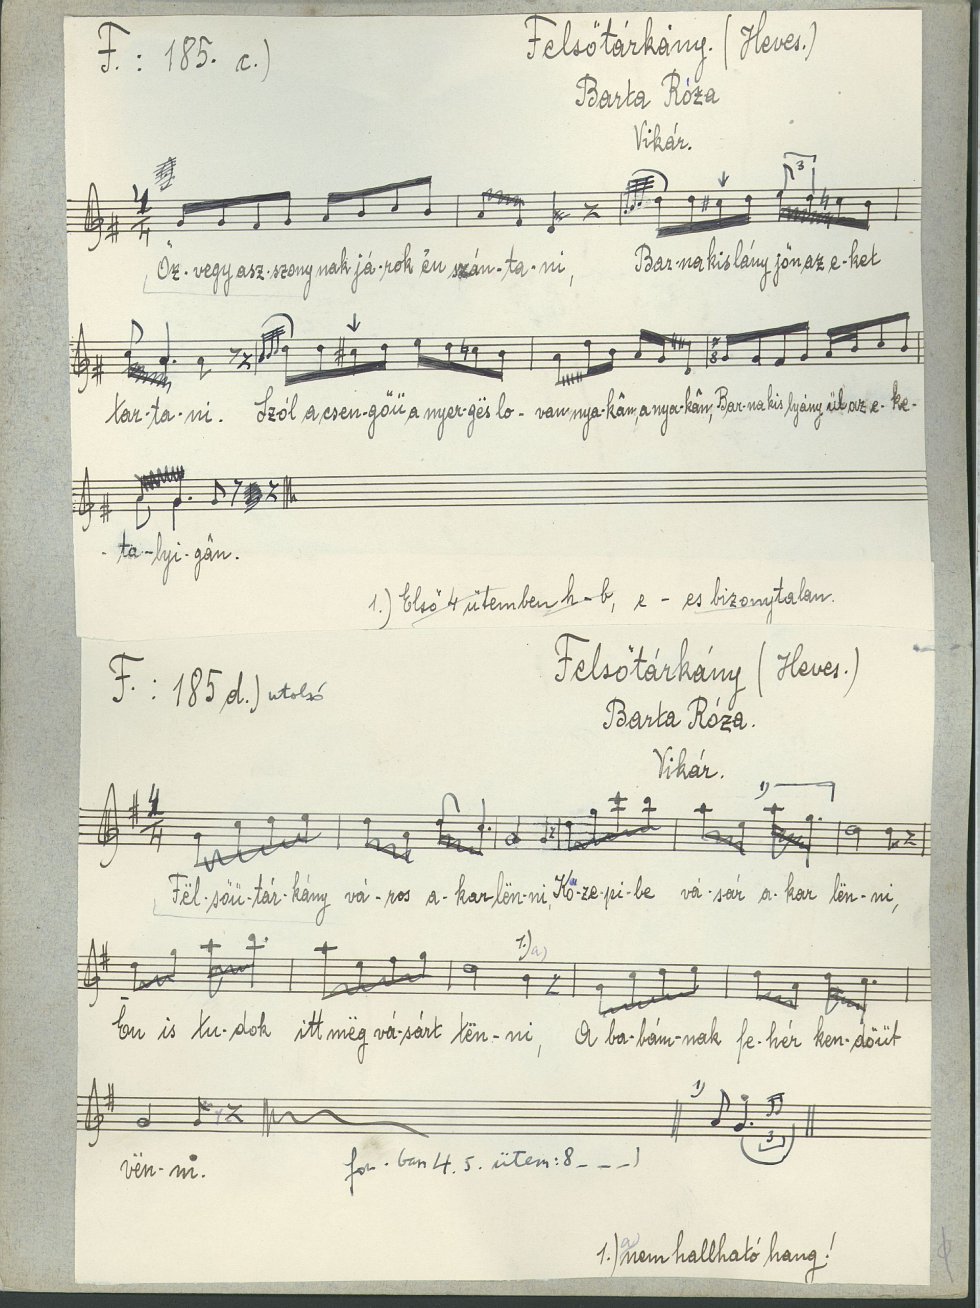 F.: 185. c.)
Felsőtárkány. (Heves.)
Barta Róza
Vikár.
4/4
3
Öz-vegy asz-szony nak já-rok én szán-ta-ni, Bar-na kis lány jön, az e-ket
tar-ta-ni. Szól a csen-göü a nyer-gës lo-van nya-kân, a nya-kân, Bar-na kis lyány ül az e-ke-
-ta-lyi-gân.
1.) Első 4 ütemben h-b, e-es bizonytalan.
F.: 185 d.) utolsó
Felsőtárkány (Heves.)
Barta Róza.
Vikár.
1)
4/4
Fël-söü-tár-kány vá-ros a-kar lën-ni, Kö-ze-pi-be vá-sár a-kar lën-ni,
1.) a)
Én is tu-dok itt mëg vá-sárt tën-ni, A ba-bám-nak fe-hér ken-döüt
1)
3
vën-ni.
4. 5. ütem: 8
1.) a) nem hallható hang!